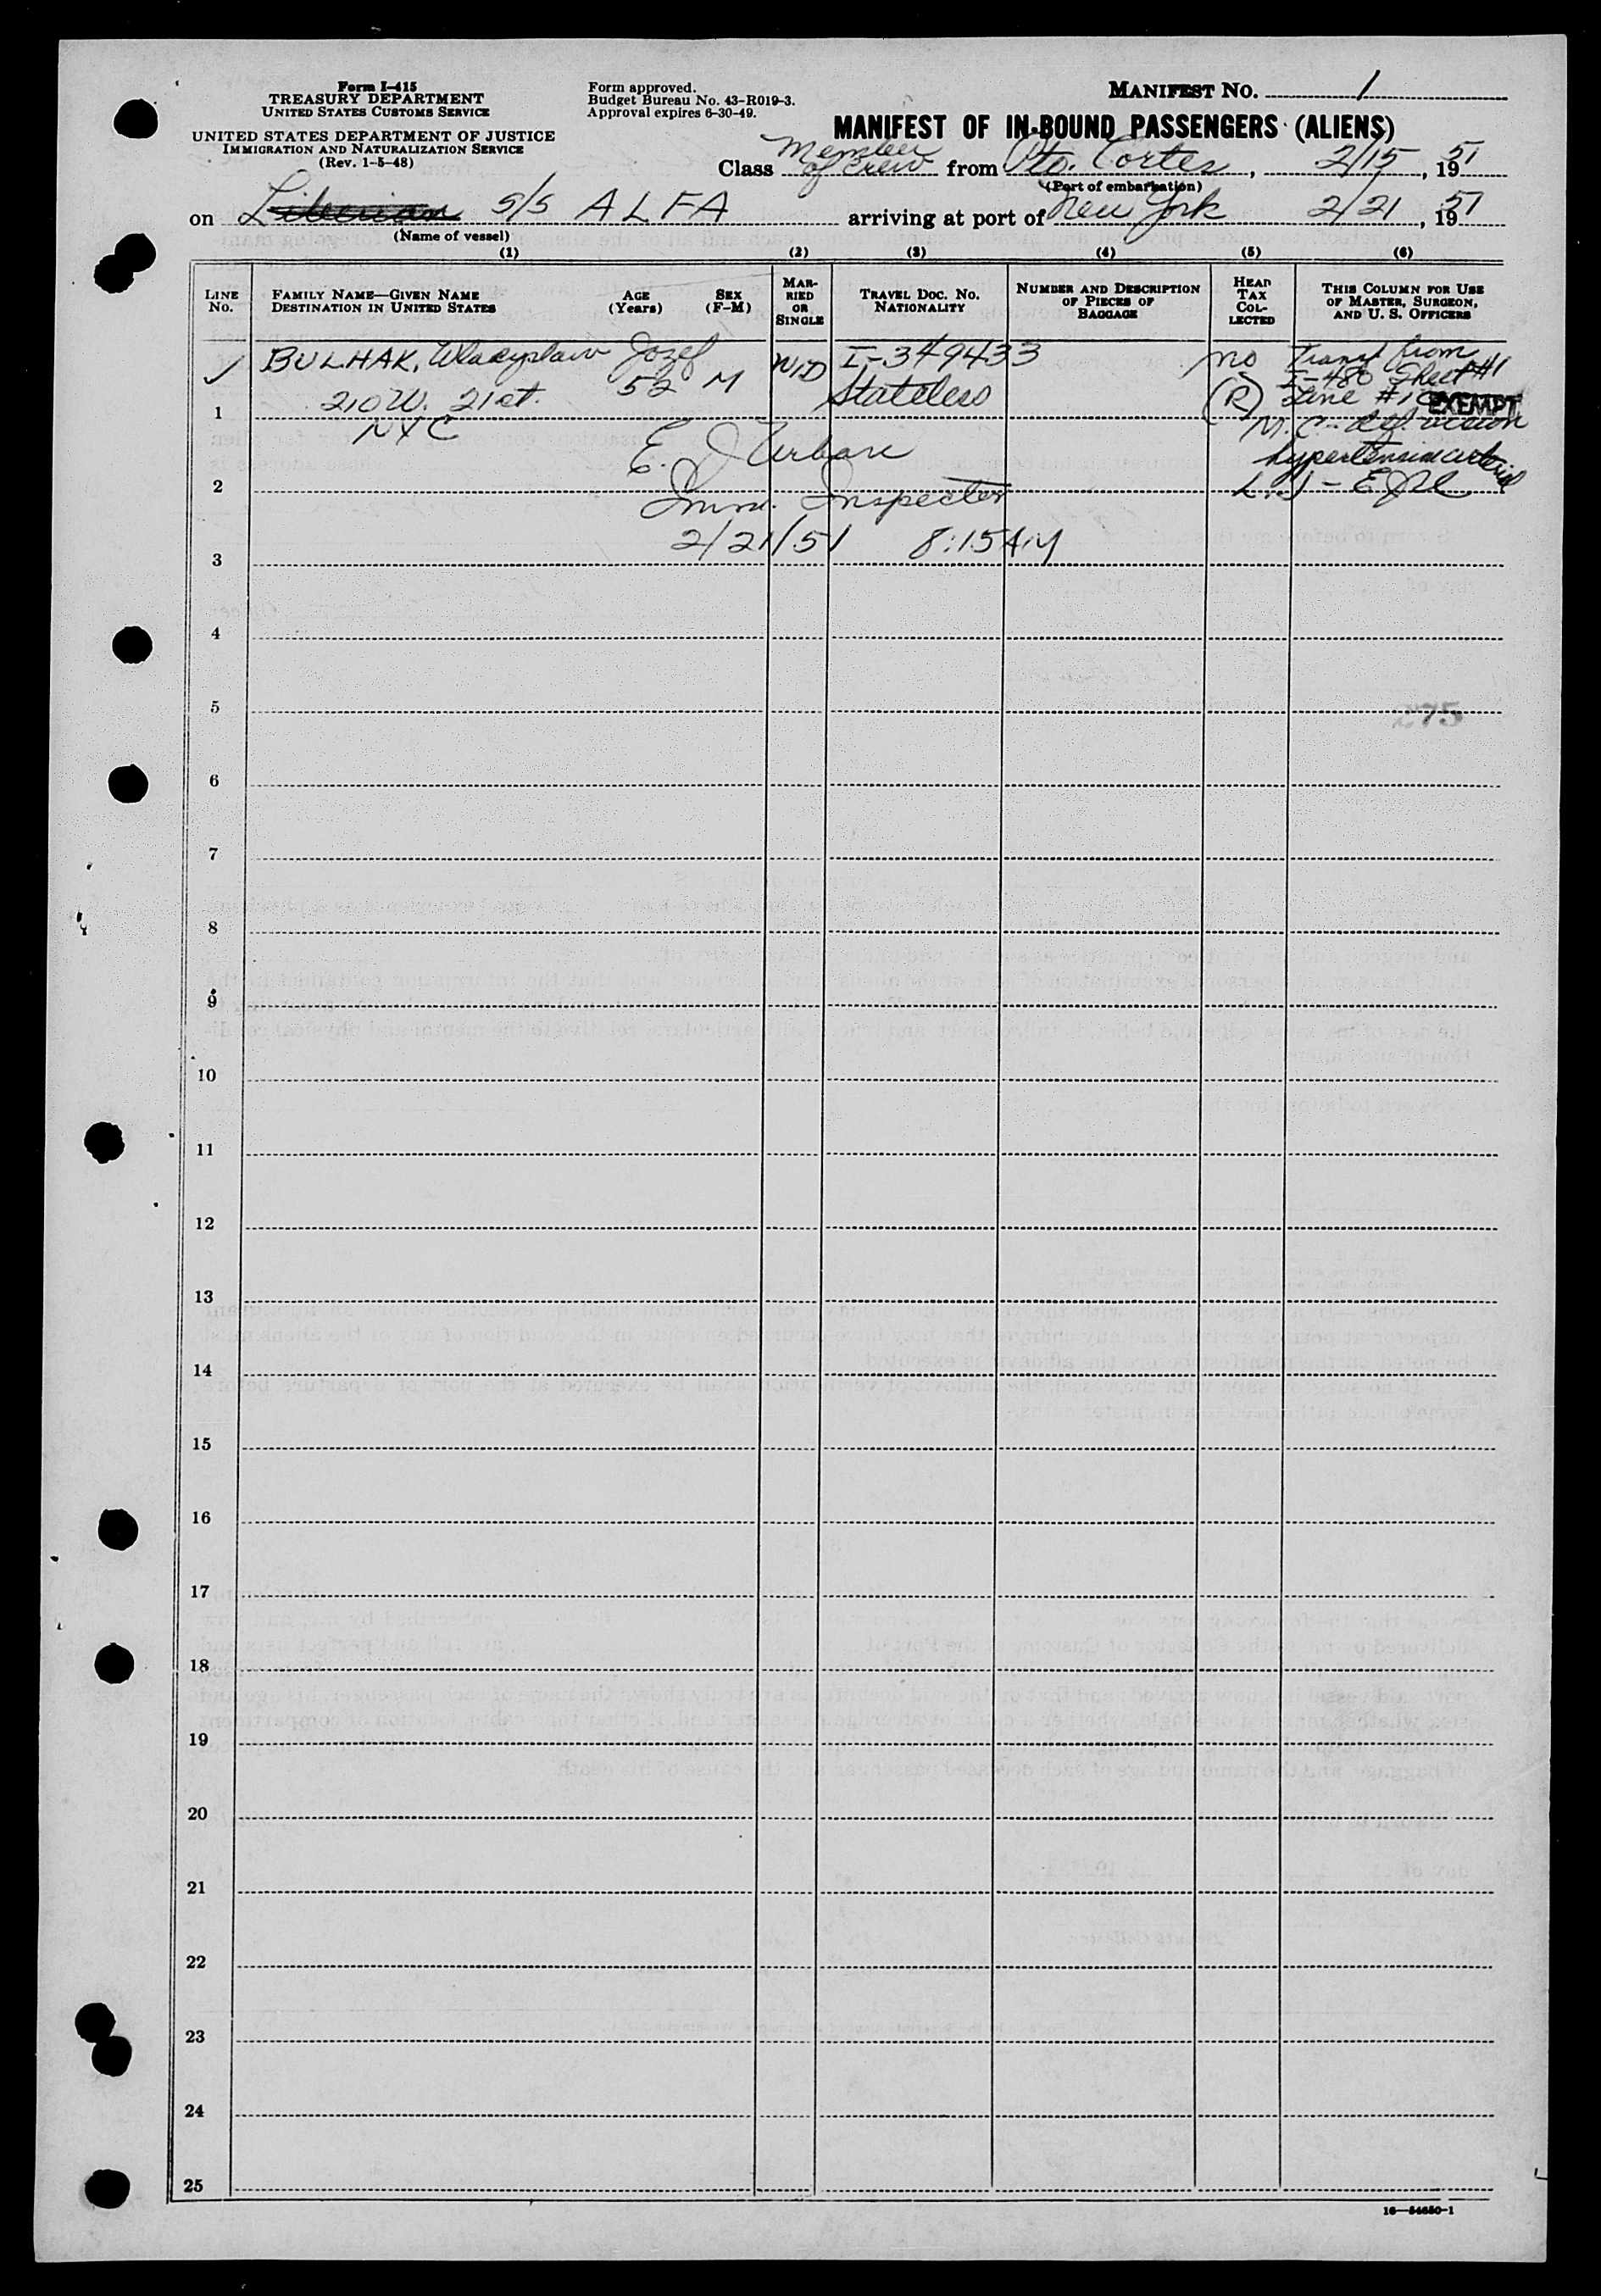 Form I-415
TREASURY DEPARTMENT
UNITED STATES CUSTOMS SERVICE
UNITED STATES DEPARTMENT OF JUSTICE
IMMIGRATION AND NATURALIZATION SERVICE
(Rev. 1-5-48)
Form approved.
Budget Bureau No. 43-R019-3.
Approval expires 6-30-49.
MANIFEST NO. 1
MANIFEST OF IN-BOUND PASSENGERS (ALIENS)
Class Member of crew from Pto. Cortes, 2/15, 1951
(Port of embarkation)
on Liberian S/S ALFA arriving at port of New York 2/21, 1951
(Name of vessel)
(1) (2) (3) (4) (5) (6)
LINE No.
FAMILY NAME—GIVEN NAME
DESTINATION IN UNITED STATES
AGE (Years)
SEX (F-M)
MARRIED OR SINGLE
TRAVEL DOC. NO.
NATIONALITY
NUMBER AND DESCRIPTION OF PIECES OF BAGGAGE
HEAD TAX COLLECTED
THIS COLUMN FOR USE OF MASTER, SURGEON, AND U. S. OFFICERS
BULHAK, Wladyslaw Jozef WID I-349433 no Transf from
52 M I-480 Sheet #1
210 W. 21 st. Stateless (R) Line #10
1 EXEMPT
NYC M.C. def. vision
E. J Urban hypertension arterial
2
Imm. Inspector
2/21/51 8:15 AM
3
4
5
275
6
7
8
9
10
11
12
13
14
15
16
17
18
19
20
21
22
23
24
25
16—54650-1